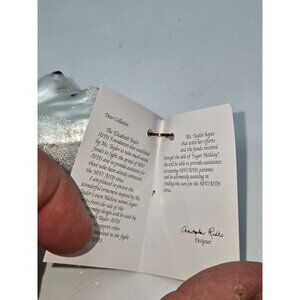 Dear Collector,
The Elizabeth Taylor
AIDS Foundation was established
by Ms. Taylor to raise much needed
funds to fight the spread of HIV/
AIDS and provide assistance for
those who have already contracted
the HIV/AIDS virus.
I am pleased to present this
wonderful ornament inspired by Ms.
Taylor's own Maltese named Sugar.
from the sale of this
ornament design will be used by
Taylor AIDS
other support
involved in the fight
AIDS.
Ms. Taylor hopes
that with her efforts
and the funds raised
through the sale of "Sugar Holiday",
she will be able to provide assistance
to existing HIV/AIDS patients
and in ultimately assisting in
finding the cure for the HIV/AIDS
virus.
Christopher Radko
Designer